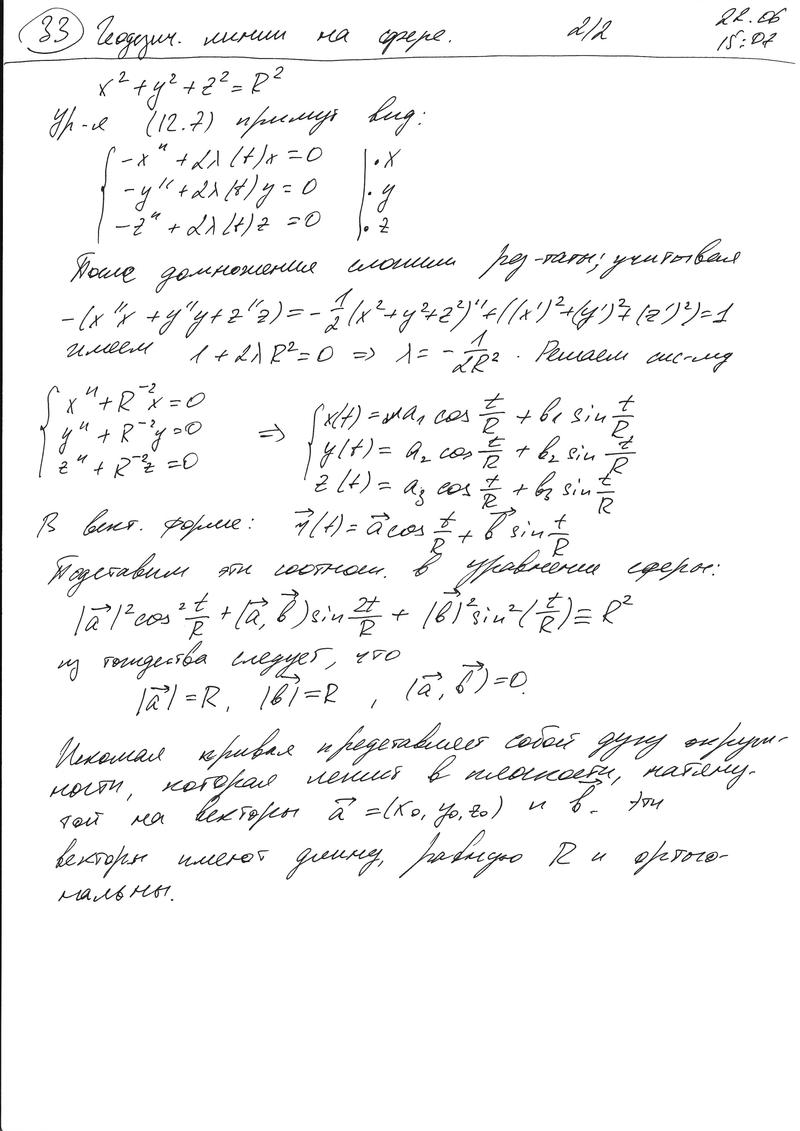 33 Геодезич. линии на сфере. 2/2 22.06 15:07
x² + y² + z² = R²
Ур-я (12.7) примут вид:
{ -x'' + 2λ(t)x = 0 | · x
-y'' + 2λ(t)y = 0 | · y
-z'' + 2λ(t)z = 0 | · z
После домножения сложим рез-таты; учитывая
-(x''x + y''y + z''z) = -1/2(x²+y²+z²)'' + ((x')²+(y')²+(z')²) = 1
имеем 1 + 2λR² = 0 => λ = -1/2R². Решаем сис-му
{ x'' + R⁻²x = 0 => { x(t) = a₁ cos t/R + b₁ sin t/R
y'' + R⁻²y = 0 y(t) = a₂ cos t/R + b₂ sin t/R
z'' + R⁻²z = 0 z(t) = a₃ cos t/R + b₃ sin t/R
В вект. форме: r⃗(t) = a⃗ cos t/R + b⃗ sin t/R
Подставим эти соотнош. в уравнение сферы:
|a⃗|² cos² t/R + (a⃗, b⃗) sin 2t/R + |b⃗|² sin² (t/R) ≡ R²
из тождества следует, что
|a⃗| = R, |b⃗| = R, (a⃗, b⃗) = 0.
Искомая кривая представляет собой дугу окруж-
ности, которая лежит в плоскости, натяну-
той на векторы a⃗ = (x₀, y₀, z₀) и b⃗. Эти
векторы имеют длину, равную R и ортого-
нальны.